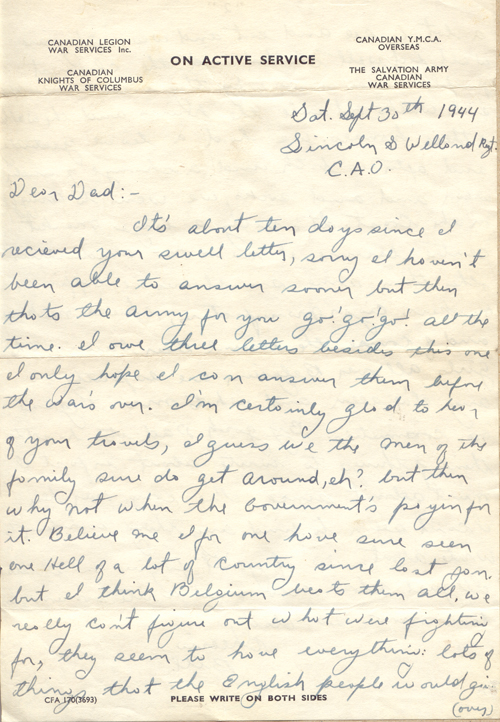 CANADIAN LEGION
WAR SERVICES Inc.
CANADIAN
KNIGHTS OF COLUMBUS
WAR SERVICES
ON ACTIVE SERVICE
CANADIAN Y.M.C.A.
OVERSEAS
THE SALVATION ARMY
CANADIAN
WAR SERVICES
Sat. Sept 30th 1944
Lincoln & Welland Rgt.
C.A.O.
Dear Dad:-
It's about ten days since I
recieved your swell letter, sorry I haven't
been able to answer sooner but then
thats the army for you go! go! go! all the
time. I owe three letters besides this one
I only hope I can answer them before
the war's over. I'm certainly glad to hear
of your travels, I guess we the men of the
family sure do get around, eh? but then
why not when the Government's payin for
it. Believe me I for one have sure seen
one Hell of a lot of country since last Jan.
but I think Belgium beats them all, we
really can't figure out what were fighting
for, they seem to have everything: lots of
things that the English people would give
CFA 170(3693)
PLEASE WRITE ON BOTH SIDES
(over)